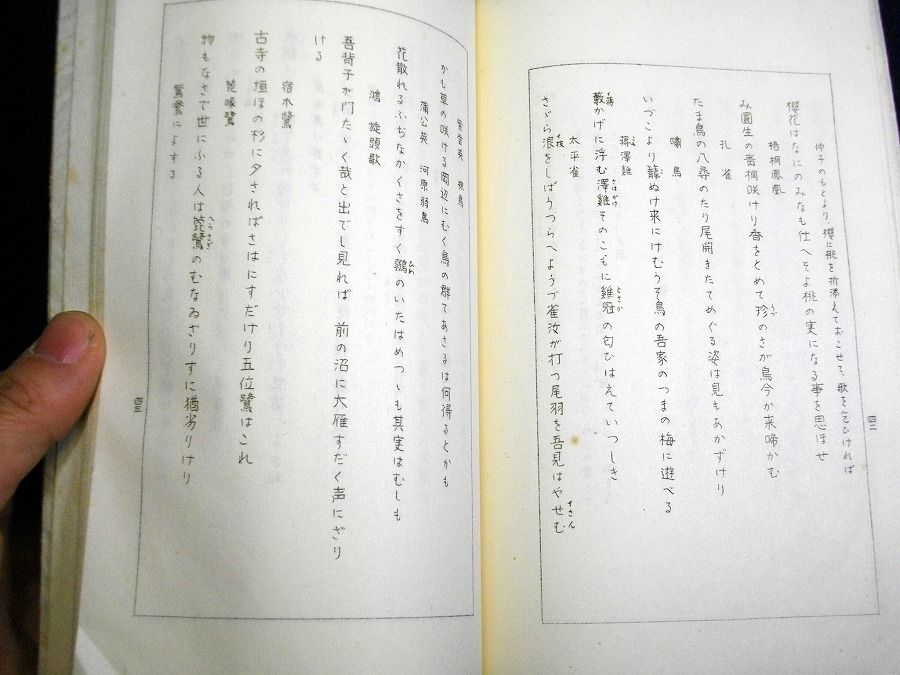 仲子のもとより、櫻に桃を折添えておこせて、歌を乞ひければ
櫻花はなにのみなも仕へそよ桃の実になる事を思ほせ
梧桐鳳凰
み園生の青桐咲けり香をとめて珍のさが鳥今か来啼かむ
うづ
孔雀
たま鳥の八尋のたり尾開きたてめぐる姿は見もあかずけり
嘯鳥
いづこより籠ぬけ来にけむうそ鳥の吾家のつまの梅に遊べる
こ
蒋澤雞
さはかけ
藪かげに浮む澤雞そのこもに雞冠の匂ひはえていつしき
とさか
太平雀
さゞら浪をしばうつらへようづ雀汝が打つ尾羽を吾見はやせむ
すさん
四二
紫雲英 桃鳥
かも草の咲ける岡辺にむく鳥の群てあさるは何得るとかも
蒲公英 河原弱鳥
花散れるふぢなかくさをすく鷃のいたはめつゝも其実はむしも
鴻 旋頭歌
吾背子が門たゝく哉と出でし見れば 前の沼に大雁すだく声にざり
ける
宿木鷺
古寺の垣ほの杉に夕さればさはにすだけり五位鷺はこれ
箆喙鷺
物もなさで世にふる人は箆鷺のむなゐざりすに猶劣りけり
へらさぎ
鴛鴦によする
四三